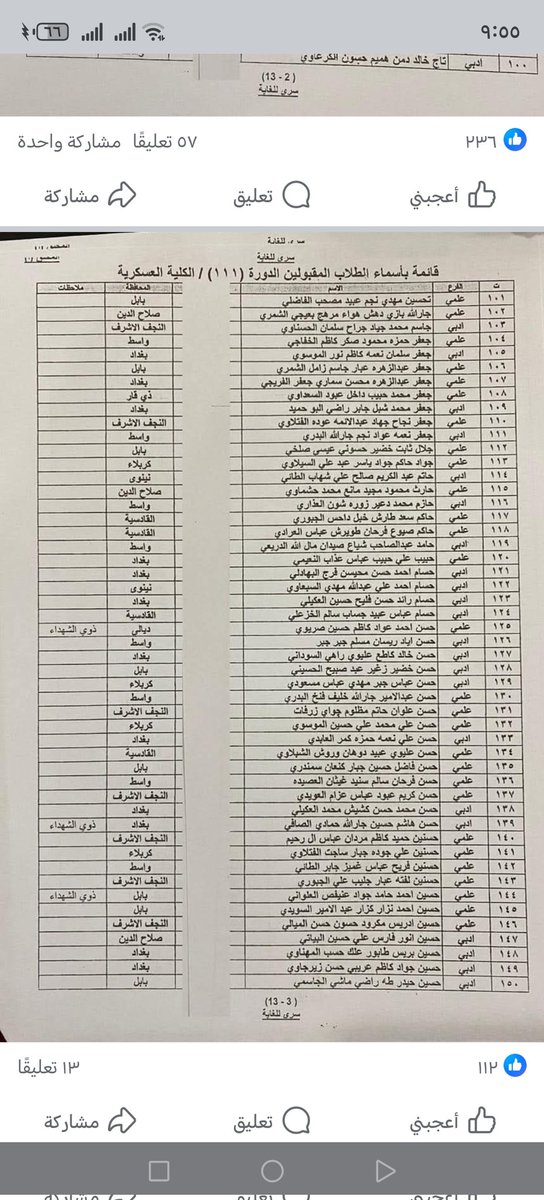 ٩:٥٥
٦٦
١٠٠ ادبي تاج خالد دمن هميم حسون الكرعاوي
(2 - 13)
سري للغاية
٢٣٦ ٥٧ تعليقًا مشاركة واحدة
أعجبني تعليق مشاركة
سري للغاية
سري للغاية
قائمة بأسماء الطلاب المقبولين الدورة (١١١) / الكلية العسكرية
ت الفرع الاسم المحافظة ملاحظات
١٠١ علمي تحسين مهدي نجم عبيد مصحب الفاضلي بابل
١٠٢ علمي جارالله بازي دهش هواء مرهج بعيجي الشمري صلاح الدين
١٠٣ ادبي جاسم محمد جياد جراح سلمان الحسناوي النجف الاشرف
١٠٤ علمي جعفر حمزه محمود صكر كاظم الخفاجي واسط
١٠٥ ادبي جعفر سلمان نعمه كاظم نور الموسوي بغداد
١٠٦ علمي جعفر عبدالزهره عبار جاسم زامل الشمري بابل
١٠٧ علمي جعفر عبدالزهره محسن سماري جعفر الفريجي بغداد
١٠٨ علمي جعفر محمد حبيب داخل عبود السعداوي ذي قار
١٠٩ ادبي جعفر محمد شبل جابر راضي البو حميد بغداد
١١٠ علمي جعفر نجاح جهاد عبدالائمه عوده الفتلاوي النجف الاشرف
١١١ ادبي جعفر نعمه عواد نجم جارالله البدري واسط
١١٢ علمي جلال ثابت خضير حسوني عيسى صلخي بابل
١١٣ علمي جواد حاكم جواد ياسر عبد علي السيلاوي كربلاء
١١٤ ادبي حاتم عبد الكريم صالح علي شهاب الطائي نينوى
١١٥ علمي حارث محمود مجيد مانع محمد حشماوي صلاح الدين
١١٦ ادبي حازم محمد دعير زوره شون العذاري واسط
١١٧ علمي حاكم سعد طارش خبل داحس الجبوري القادسية
١١٨ علمي حاكم صيوع فرحان طويرش عباس العرادي القادسية
١١٩ ادبي حامد عبدالصاحب شياع صيدان مال الله الدريعي واسط
١٢٠ علمي حبيب علي حبيب عباس عذاب النعيمي بغداد
١٢١ ادبي حسام احمد حسن محيسن فرج البهادلي بغداد
١٢٢ ادبي حسام احمد علي عبدالله مهدي السبعاوي نينوى
١٢٣ ادبي حسام رائد حسن فليح حسين العكيلي بغداد
١٢٤ ادبي حسام عباس عبيد جساب سالم الخزعلي القادسية
١٢٥ علمي حسن احمد عواد كاظم حسين صريوي ديالى ذوي الشهداء
١٢٦ ادبي حسن اياد ريسان مسلم جبر جبر واسط
١٢٧ ادبي حسن خالد كاطع عليوي راهي السوداني بغداد
١٢٨ ادبي حسن خضير زغير عبد صبيح الحسيني بابل
١٢٩ ادبي حسن عباس جبر مهدي عباس مسعودي كربلاء
١٣٠ علمي حسن عبدالامير جارالله خليف فنخ البدري واسط
١٣١ علمي حسن علوان حاتم مظلوم جواي زرفات النجف الاشرف
١٣٢ علمي حسن علي محمد علي حسين الموسوي كربلاء
١٣٣ ادبي حسن علي نعمه حمزه كمر العابدي بغداد
١٣٤ علمي حسن عليوي عبيد دوهان وروش الشبلاوي القادسية
١٣٥ علمي حسن فاضل حسين جبار كنعان سمندري بابل
١٣٦ علمي حسن فرحان سالم سنيد غيثان العصيده واسط
١٣٧ علمي حسن كريم عبود عباس عزام العويدي النجف الاشرف
١٣٨ ادبي حسن محمد حسن كشيش محمد العكيلي بغداد
١٣٩ ادبي حسن هاشم حسين جارالله حمادي الصافي بغداد ذوي الشهداء
١٤٠ علمي حسنين حميد كاظم مردان عباس ال رحيم النجف الاشرف
١٤١ علمي حسنين علي جوده جبار ساجت الفتلاوي كربلاء
١٤٢ علمي حسنين فريح عباس غميز جابر الطائي واسط
١٤٣ علمي حسنين لفته عبار جليب علي الجبوري النجف الاشرف
١٤٤ ادبي حسين احمد حامد جواد عنيفص العلواني بابل ذوي الشهداء
١٤٥ علمي حسين احمد نزار كزار عبد الامير السويدي بابل
١٤٦ علمي حسين ادريس مكرود حسون حسن الميالي النجف الاشرف
١٤٧ ادبي حسين انور فارس علي حسين البياتي صلاح الدين
١٤٨ ادبي حسين بريس طابور علك حسب المهناوي بغداد
١٤٩ ادبي حسين جواد كاظم عريبي حسن زيرجاوي بغداد
١٥٠ ادبي حسين حيدر طه راضي ماشي الجاسمي بابل
(3 - 13)
سري للغاية
١١٢ ١٣ تعليقًا
أعجبني تعليق مشاركة